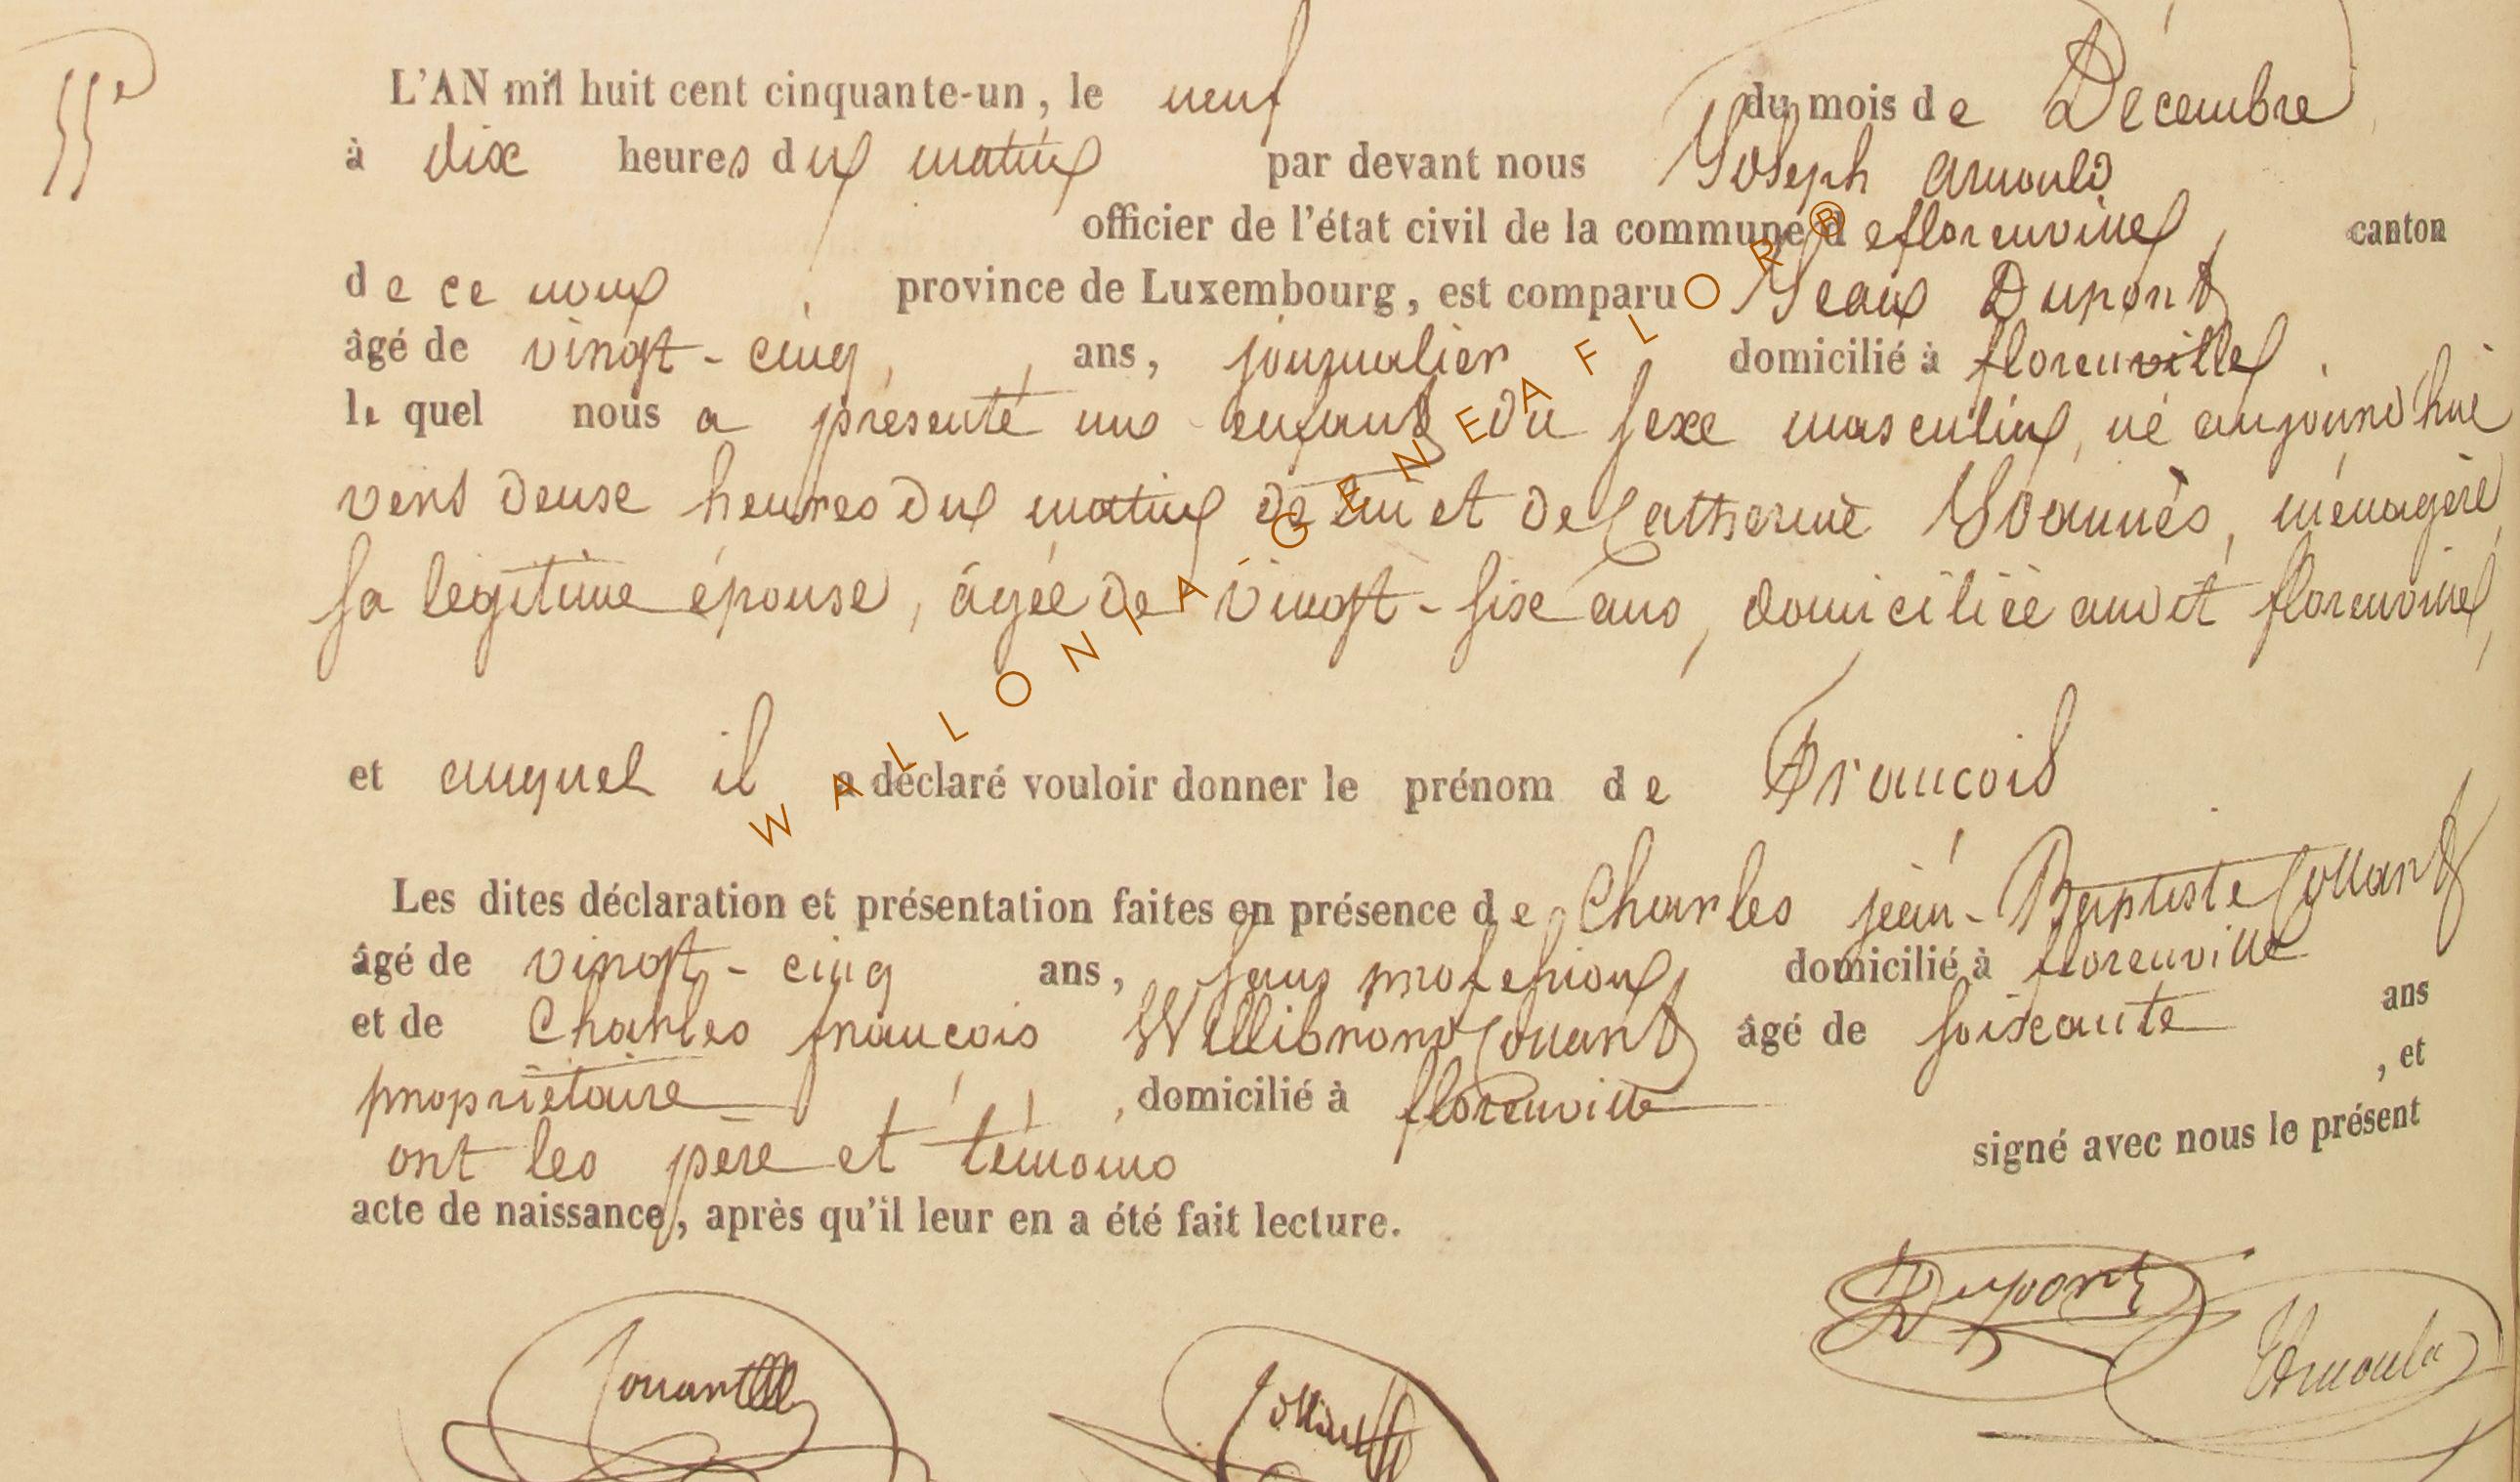 55e
L'AN mil huit cent cinquante-un, le neuf du mois de Décembre
à dix heures du matin par devant nous Joseph Arnould
officier de l'état civil de la commune de florenville, canton
de ce nom, province de Luxembourg, est comparu Jean Dupont
âgé de vingt-cinq ans, journalier domicilié à florenville
le quel nous a présenté un enfant du sexe masculin, né aujourd'hui
vers deuse heures du matin de lui et de Catherine Joannès, ménagère
sa légitime épouse, âgée de vingt-six ans, domiciliée audit florenville,
et auquel il a déclaré vouloir donner le prénom de François
Les dites déclaration et présentation faites en présence de Charles jean-Baptiste Collart
âgé de vingt-cinq ans, sans profession, domicilié à florenville
et de Charles françois Willibrord Collart âgé de soixante ans
propriétaire, domicilié à florenville, et
ont les père et témoins signé avec nous le présent
acte de naissance, après qu'il leur en a été fait lecture.
Dupont
Arnould
Collart
WALLONIA-GENEAFLOR®